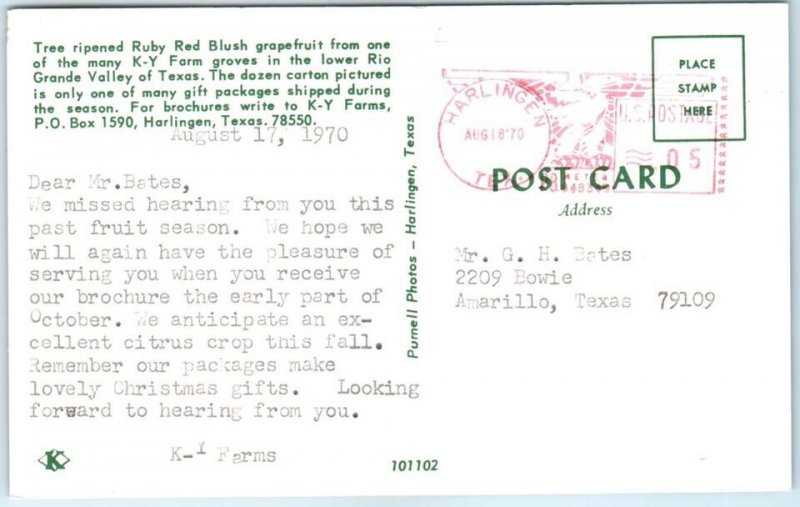 Tree ripened Ruby Red Blush grapefruit from one
of the many K-Y Farm groves in the lower Rio
Grande Valley of Texas. The dozen carton pictured
is only one of many gift packages shipped during
the season. For brochures write to K-Y Farms,
P.O. Box 1590, Harlingen, Texas. 78550.
August 17, 1970
Dear Mr.Bates,
We missed hearing from you this
past fruit season. We hope we
will again have the pleasure of
serving you when you receive
our brochure the early part of
October. We anticipate an ex-
cellent citrus crop this fall.
Remember our packages make
lovely Christmas gifts. Looking
forward to hearing from you.
K-Y Farms
K
Purnell Photos – Harlingen, Texas
101102
HARLINGEN
AUG 18 '70
TEX.
U.S. POSTAGE
05
PLACE
STAMP
HERE
POST CARD
Address
Mr. G. H. Bates
2209 Bowie
Amarillo, Texas 79109